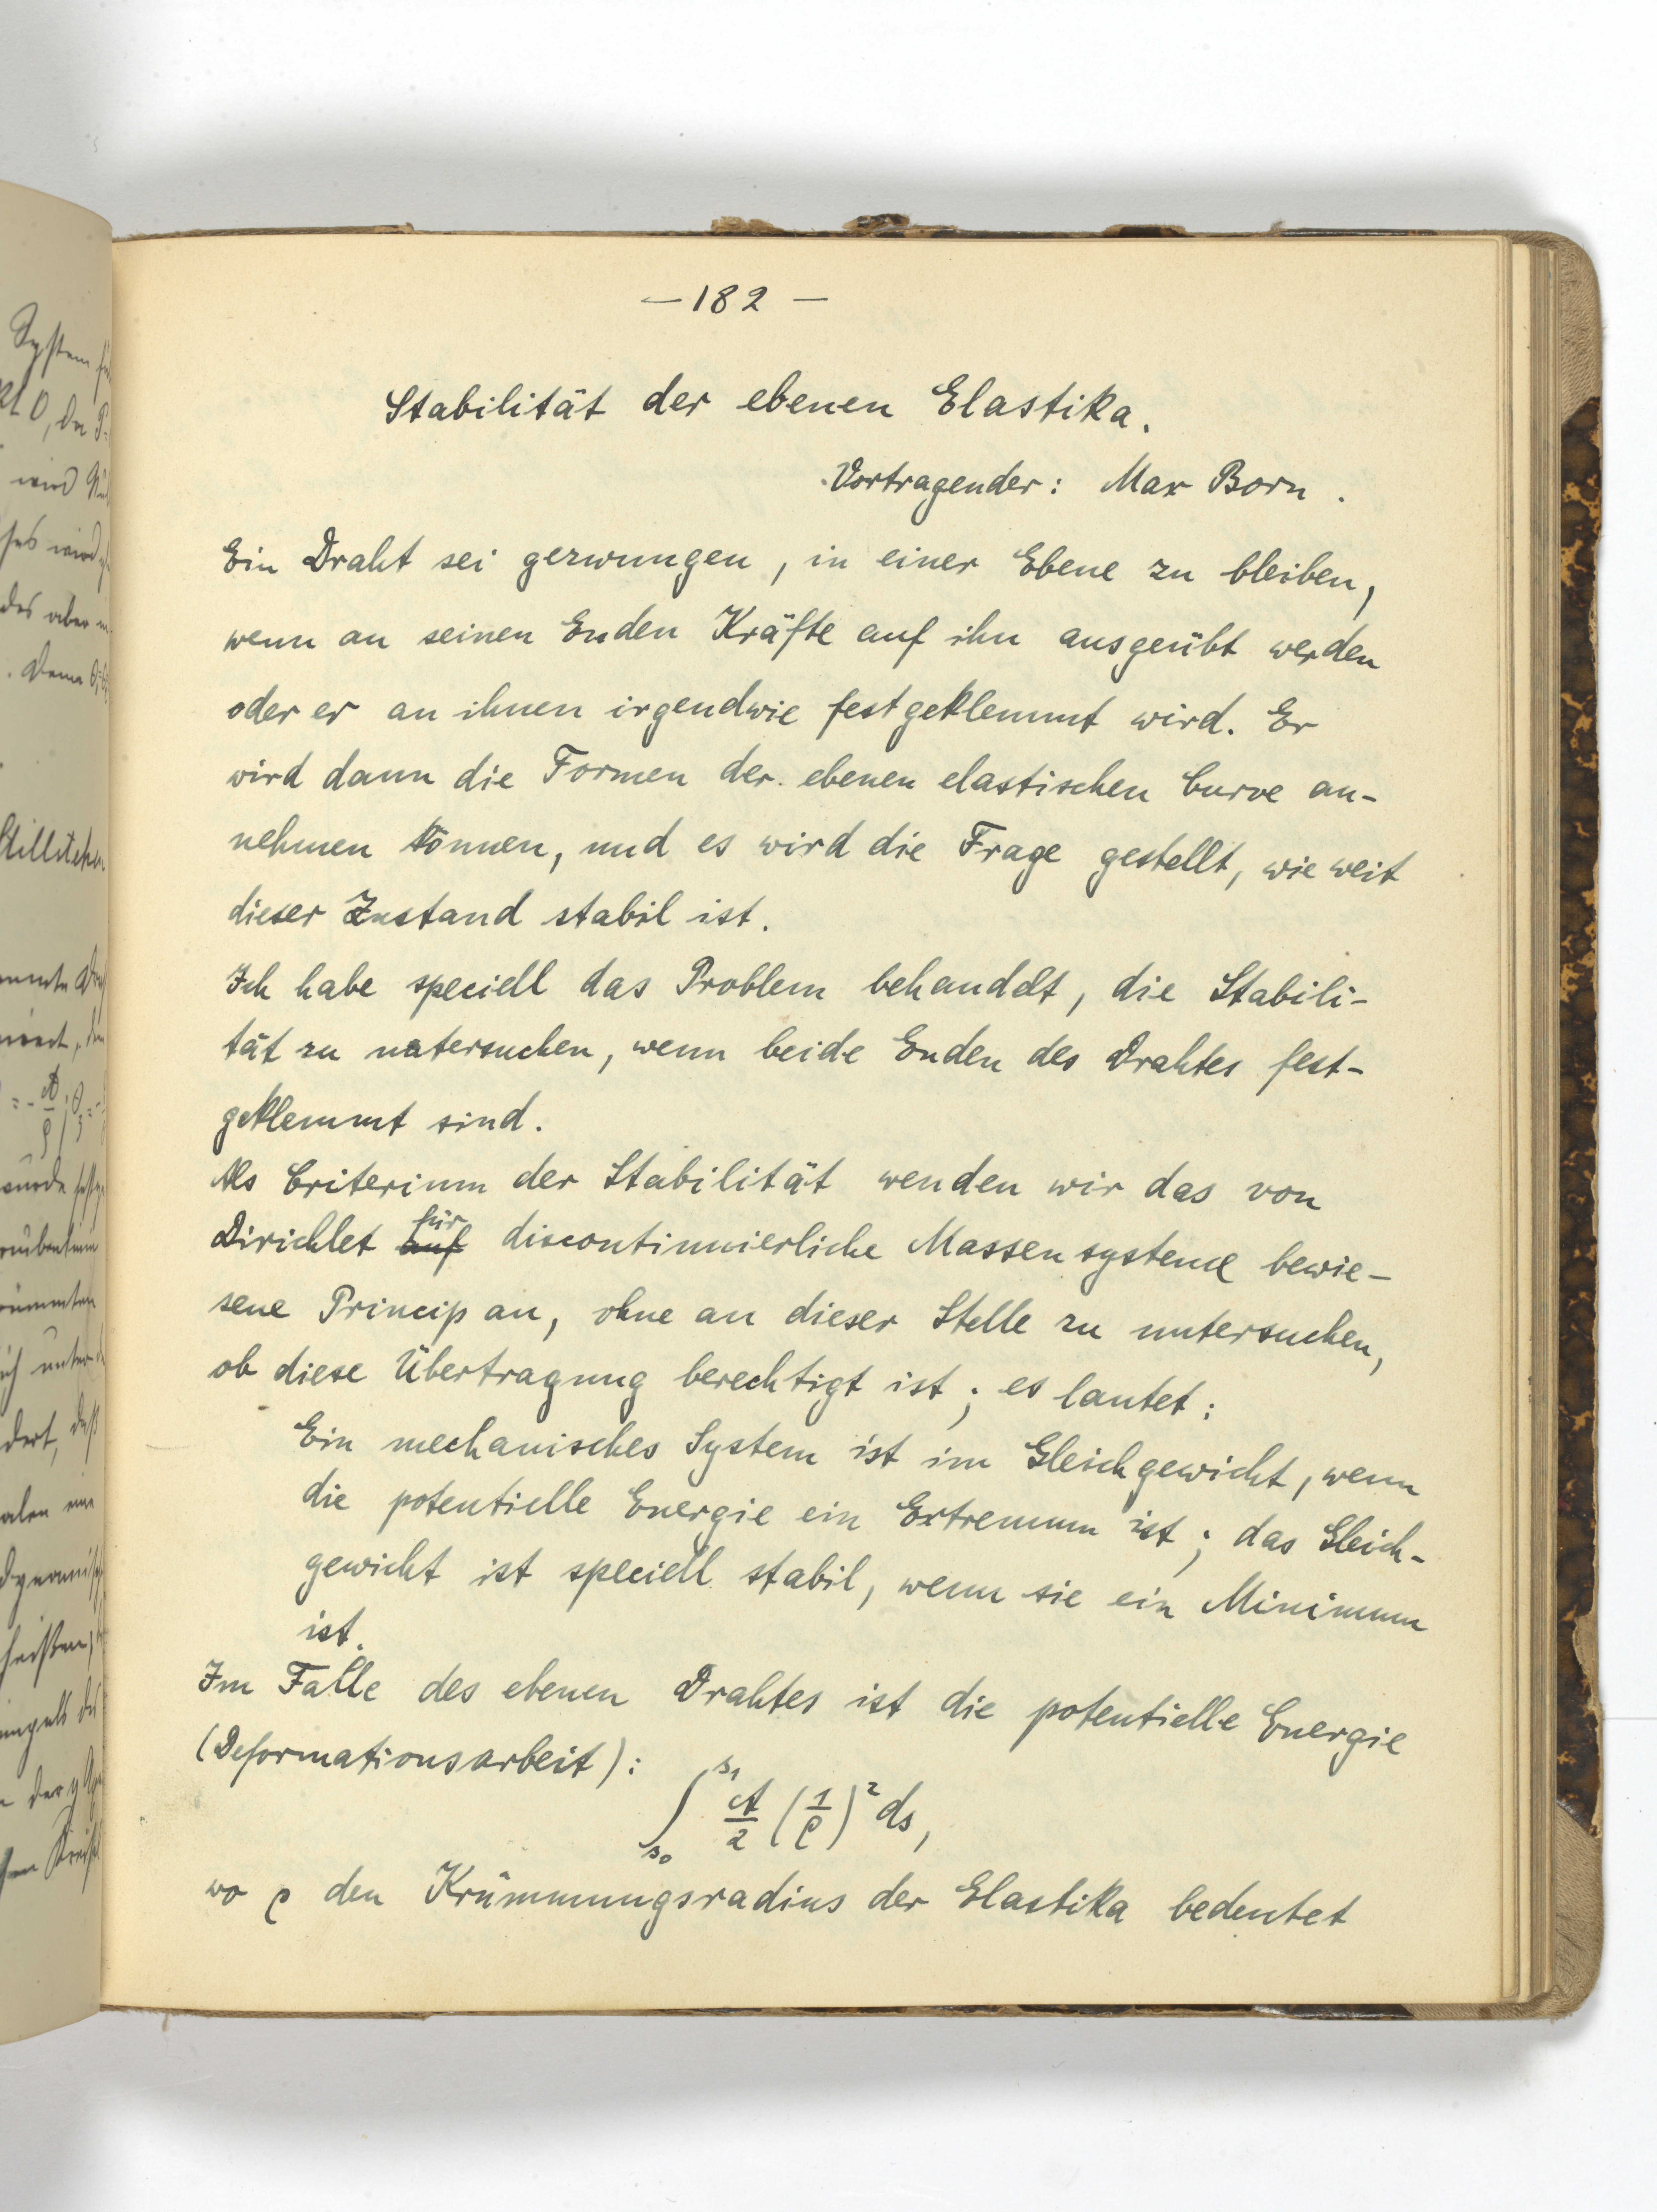 — 182 —
Stabilität der ebenen Elastika.
Vortragender: Max Born.
Ein Draht sei gezwungen, in einer Ebene zu bleiben,
wenn an seinen Enden Kräfte auf ihn ausgeübt werden
oder er an ihnen irgendwie festgeklemmt wird. Er
wird dann die Formen der ebenen elastischen Curve an-
nehmen können, und es wird die Frage gestellt, wie weit
dieser Zustand stabil ist.
Ich habe speciell das Problem behandelt, die Stabili-
tät zu untersuchen, wenn beide Enden des Drahtes fest-
geklemmt sind.
Als Criterium der Stabilität wenden wir das von
Dirichlet auf für discontinuierliche Massensysteme bewie-
sene Princip an, ohne an dieser Stelle zu untersuchen,
ob diese Übertragung berechtigt ist; es lautet:
Ein mechanisches System ist im Gleichgewicht, wenn
die potentielle Energie ein Extremum ist; das Gleich-
gewicht ist speciell stabil, wenn sie ein Minimum
ist.
Im Falle des ebenen Drahtes ist die potentielle Energie
(Deformationsarbeit):
∫_{s₀}^{s₁} A/2 (1/ρ)² ds,
wo ρ den Krümmungsradius der Elastika bedeutet